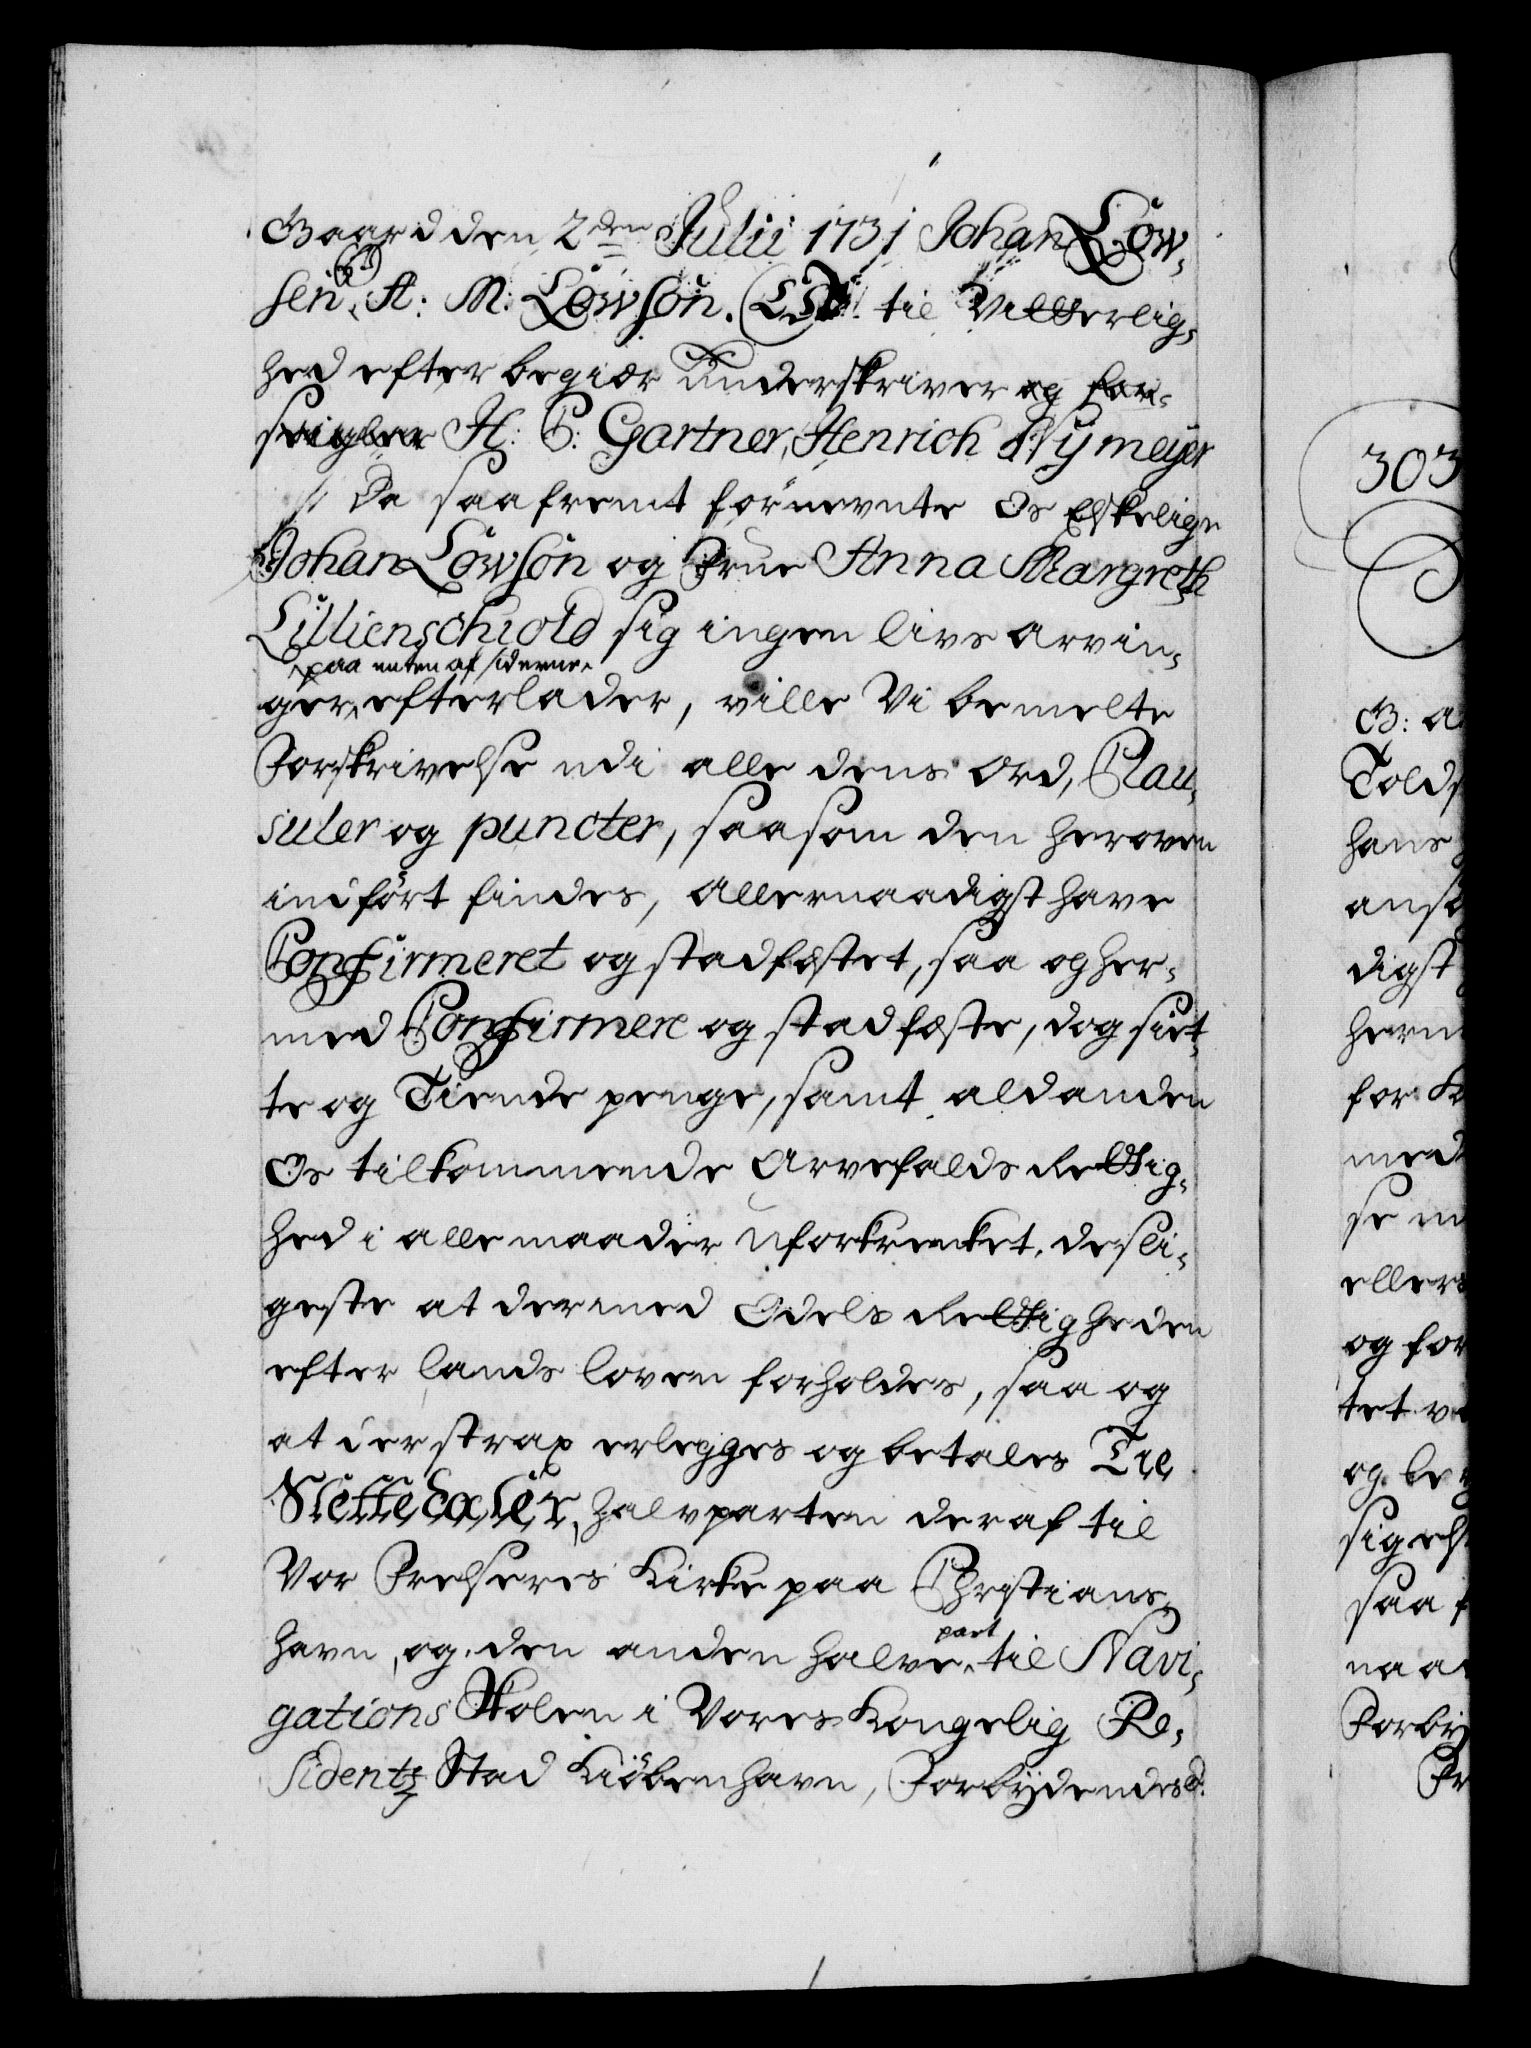 Gaard den 2den Julii 1731 Johan Löw-
sen, A: M: Löwsön. (LS) til Vitterlig-
hed efter begiær underskriver og for-
seigler H: C: Gartner, Henrich Nymeyer
Da saafremt fornevnte Os Elskelige
Johan Löwsön og Frue Anna Margreth
Lillienschiold sig ingen livs arvin-
paa enten af siderne
ger efterlader, ville Vi bemelte
Forskrivelse udi alle dens Ord, Clau-
suler og puncter, saasom den heroven
indført findes, allernaadigst have
Confirmeret og stadfæstet, saa og her-
med Confirmere og stadfæste, dog siet-
te og Tiende penge, samt ald anden
Os tilkommende Arvefalds Rettig-
hed i alle maader uforkrenket, desli-
geste at dermed Odels Rettigheden
efter lands loven forholdes, saa og
at der strax erlegges og betales Tie
Slettedaler, halvparten deraf til
Vor Frelseres Kirke paa Christians-
part
havn, og den anden halve til Navi-
gations Skolen i Vores Kongelig Re-
sidentz Stad Kiöbenhavn, Forbydendes
303
G: a
Tolds
hans
ansø
digst
herm
for Ko
med
se m
ellers
og for
tet v
og be
sigels
saa f
naa
Forby
Fr